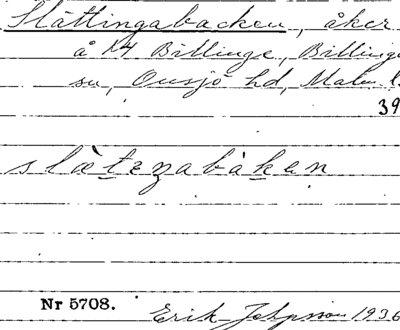 Slättingabacken, åker
å N4 Billinge, Billinge
sn, Onsjö hd, Malm. l.
39
slàtezabàken
Nr 5708.
Erik Johnsson 1936